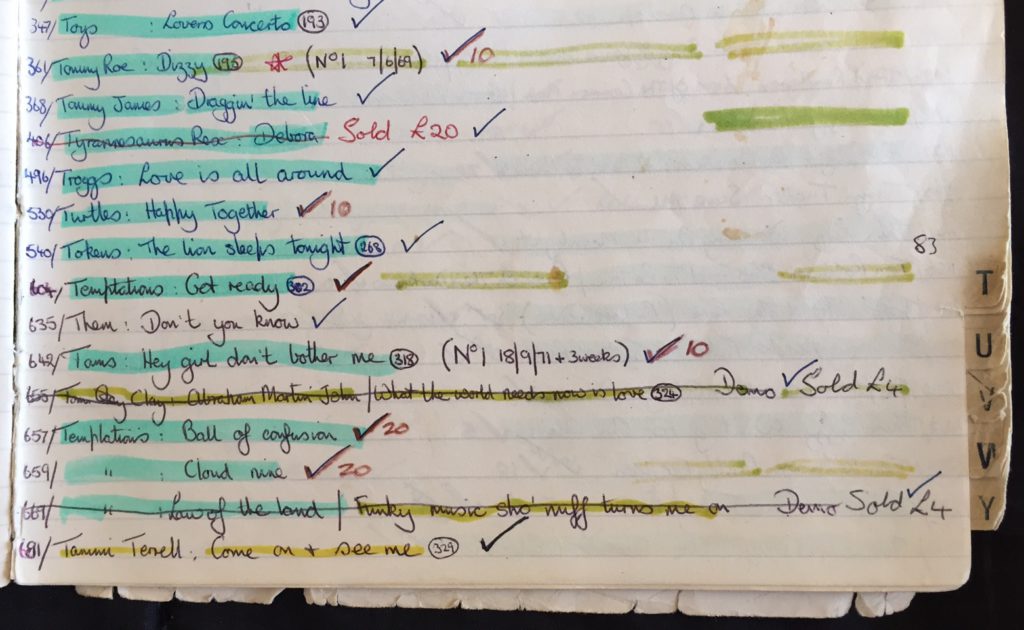 347/ Toys : Lovers Concerto (193) ✓
361/ Tommy Roe : Dizzy (195) * (No1 7/6/69) ✓ 10
368/ Tommy James : Draggin' the line ✓
406/ Tyrannosaurus Rex : Debora Sold £20 ✓
496/ Troggs : Love is all around ✓
530/ Turtles : Happy Together ✓ 10
540/ Tokens : The lion sleeps tonight (268) ✓
83
604/ Temptations : Get ready (302) ✓
635/ Them : Don't you know ✓
642/ Tams : Hey girl don't bother me (318) (No1 18/9/71 + 3 weeks) ✓ 10
655/ Tom Clay : Abraham Martin John / What the world needs now is love (324) Demo ✓ Sold £4
657/ Temptations : Ball of confusion ✓ 20
659/ " : Cloud nine ✓ 20
" : Law of the land / Funky music sho' nuff turns me on Demo Sold ✓ £4
681/ Tammi Terrell : Come on + see me (329) ✓
T
U
V
W
Y